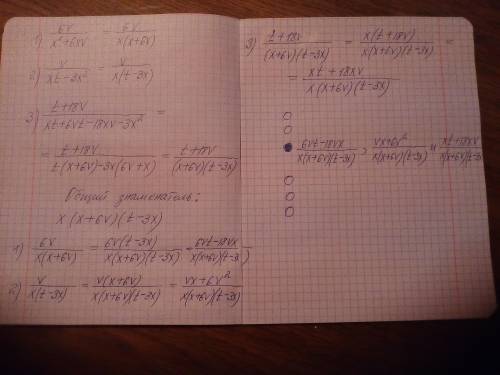 1) 6v/(x²+6xv) = 6v/(x(x+6v))
2) v/(xt-3x²) = v/(x(t-3x))
3) (t+18v)/(xt+6vt-18xv-3x²) =
= (t+18v)/(t(x+6v)-3x(6v+x)) = (t+18v)/((x+6v)(t-3x))
Общий знаменатель:
x(x+6v)(t-3x)
1) 6v/(x(x+6v)) = 6v(t-3x)/(x(x+6v)(t-3x)) = (6vt-18vx)/(x(x+6v)(t-3x))
2) v/(x(t-3x)) = v(x+6v)/(x(x+6v)(t-3x)) = (vx+6v²)/(x(x+6v)(t-3x))
3) (t+18v)/((x+6v)(t-3x)) = x(t+18v)/(x(x+6v)(t-3x)) =
= (xt+18xv)/(x(x+6v)(t-3x))
(6vt-18vx)/(x(x+6v)(t-3x)) ; (vx+6v²)/(x(x+6v)(t-3x)) и (xt+18xv)/(x(x+6v)(t-3x))